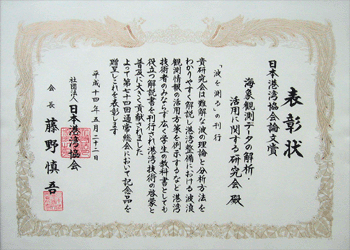 表彰状
日本港湾協会論文賞
海象観測データの解析・
活用に関する研究会 殿
「波を測る」の刊行
貴研究会は難解な波の理論と分析方法を
わかりやすく解説し港湾整備における波浪
観測情報の活用方策を例示するなど港湾
技術者のみならず広く学生の教科書としても
役立つ解説書を刊行され港湾技術の啓蒙と
普及に大きく貢献されました
よって第七十四回通常総会において記念品を
贈呈しこれを表彰します
平成十四年五月二十二日
社団法人 日本港湾協会
会長 藤野慎吾